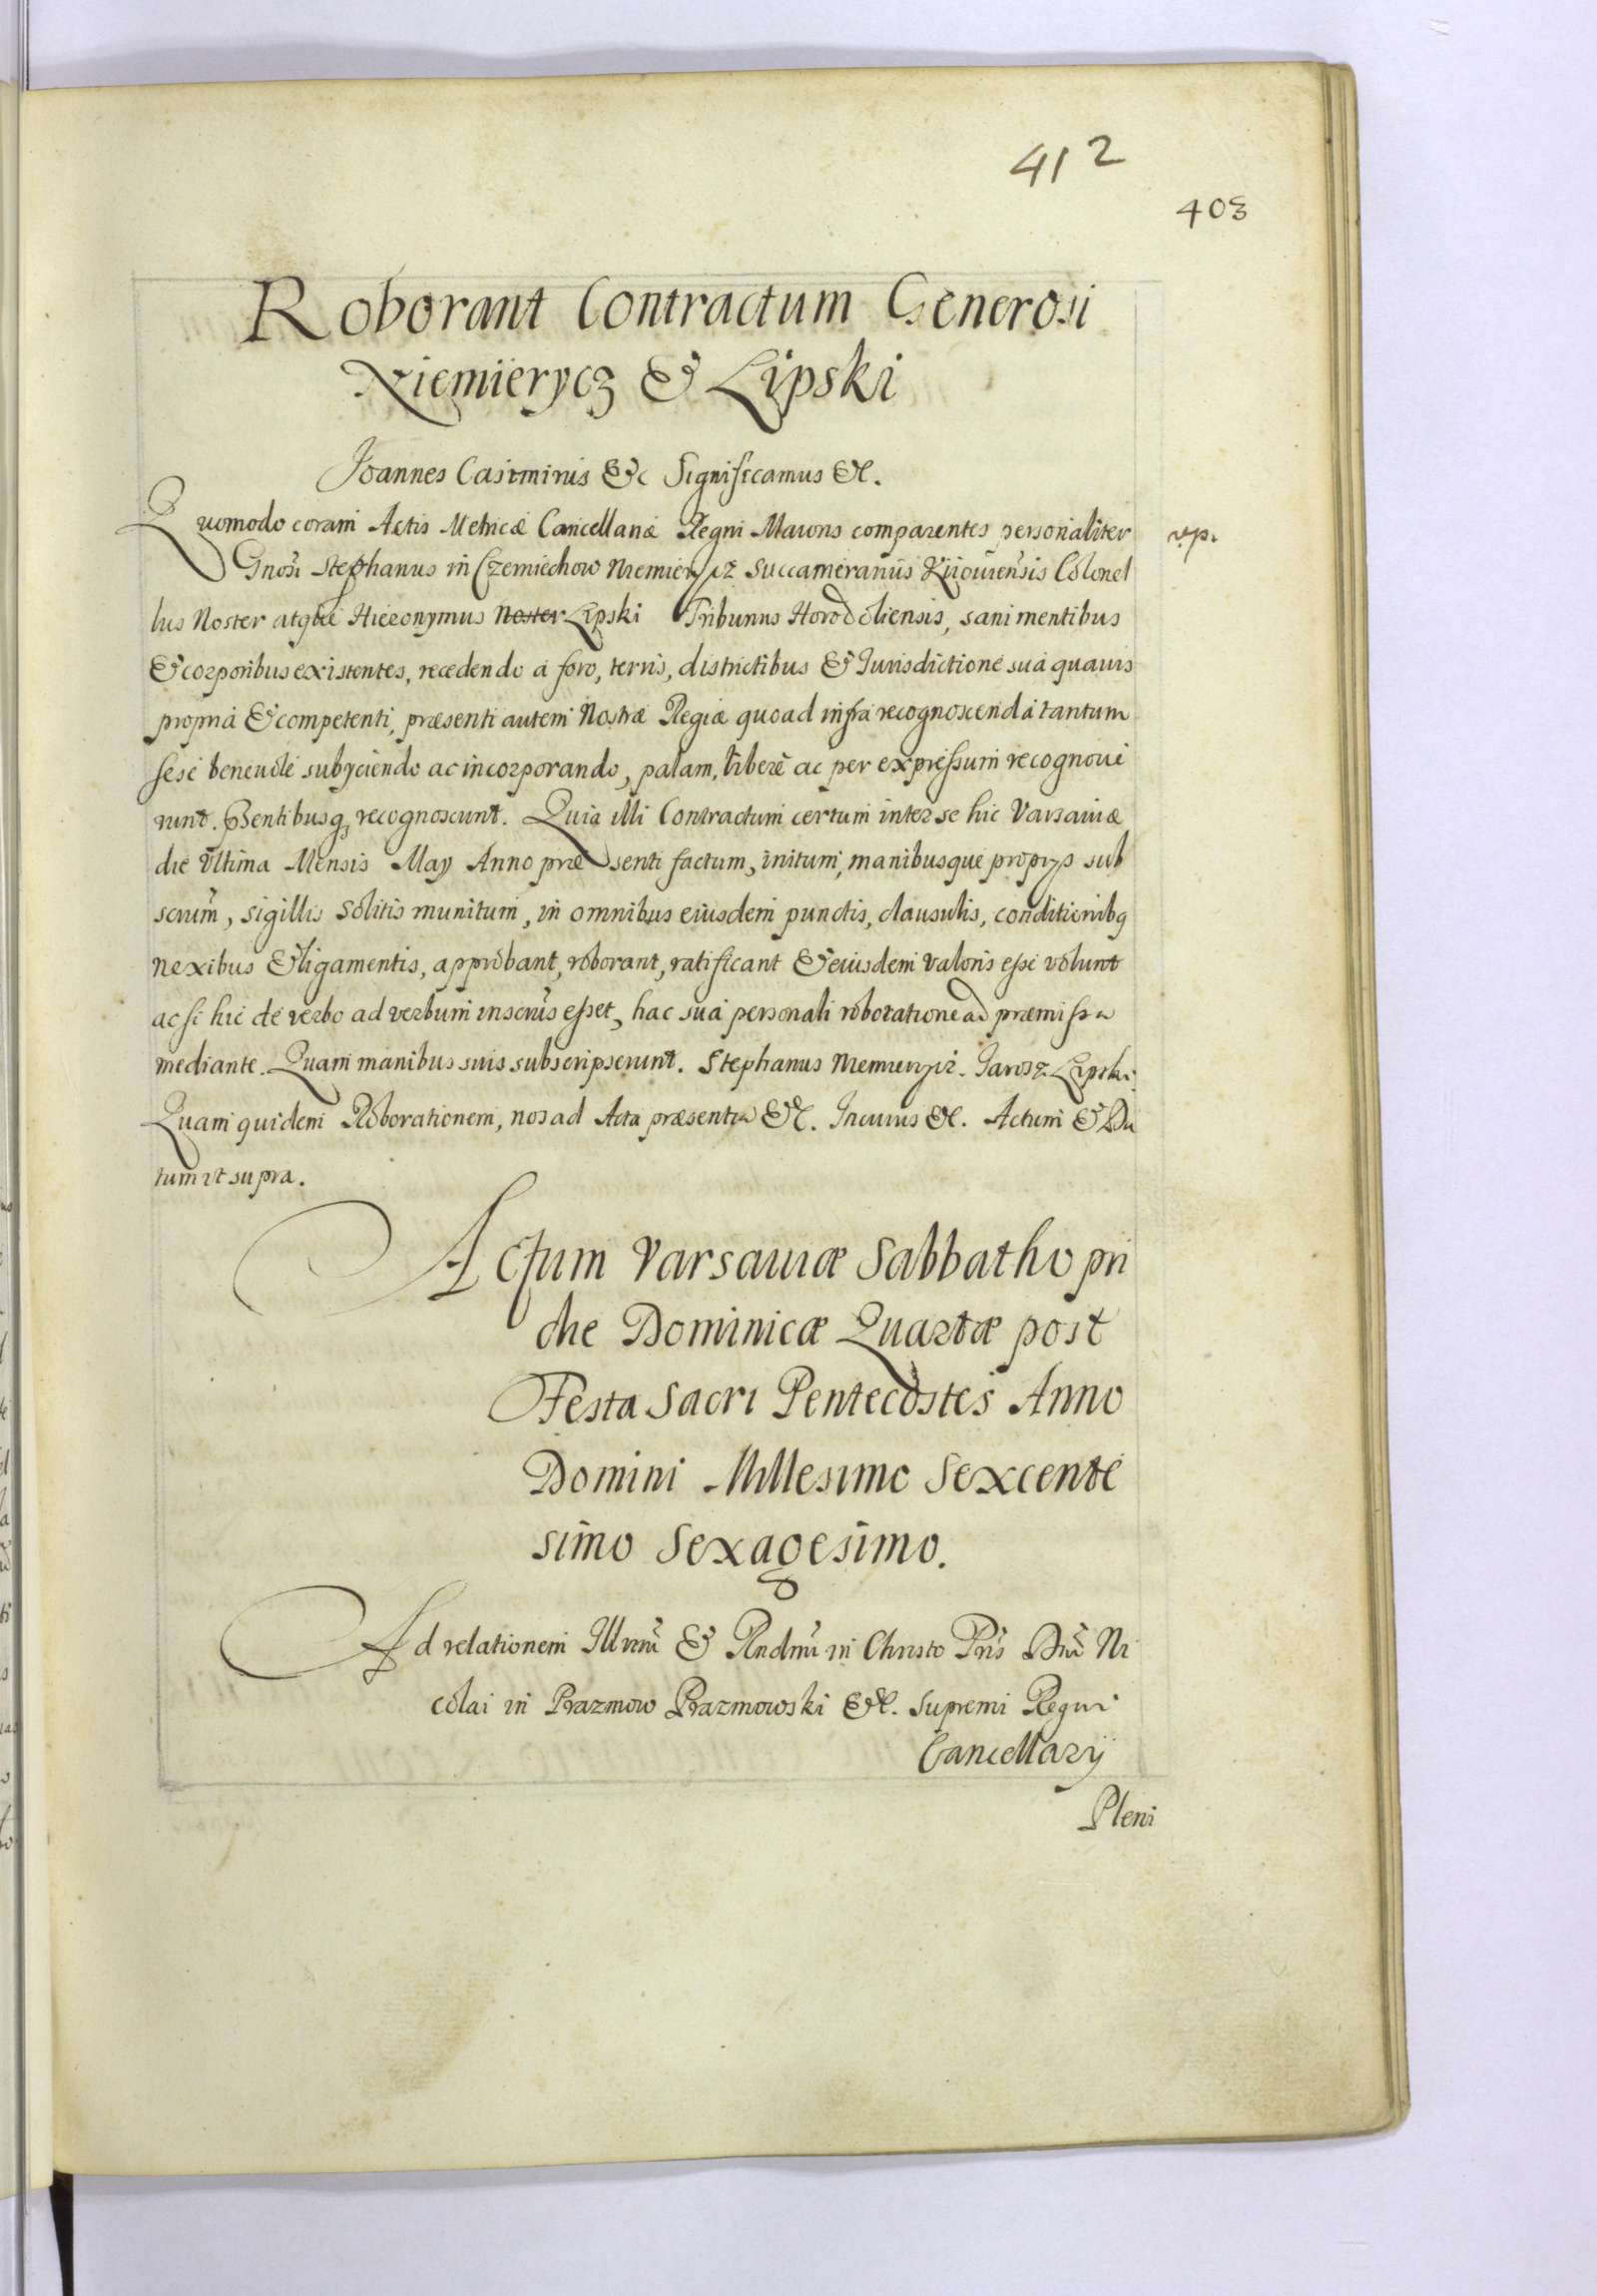 412
403
Roborant Contractum Generosi
Niemierycz & Lipski
Joannes Casimirus &c Significamus &c.
Quomodo coram Actis Metricæ Cancellariæ Regni Maioris comparentes personaliter
Gnosi Stephanus in Czerniechow Niemierycz Succamerarius Kiiouiensis Colonel
lus Noster atque Hieronymus Noster Lipski Tribunus Horodoliensis, sani mentibus
& corporibus existentes, recedendo a foro, terris, districtibus & Jurisdictione suâ quauis
propriâ & competenti, præsenti autem Nostræ Regiæ quoad infra recognoscenda tantum
sese beneuole subyciendo ac incorporando, palam, libere ac per expressum recognoue
runt. Psentibusq recognoscunt. Quia illi Contractum certum inter se hic Varsauiæ
die Ultima Mensis May Anno præsenti factum, initum, manibusque proprys sub
scrium, sigillis solitis munitum, in omnibus eiusdem punctis, clausulis, conditionibq
nexibus & ligamentis, approbant, roborant, ratificant & eiusdem valoris esse volunt
acsi hic de verbo ad verbum inscrius esset, hac suâ personali roboratione ad præmissa
mediante. Quam manibus suis subscripserunt. Stephanus Niemierycz. Jarosz Lipski.
Quam quidem Roborationem, nos ad Acta præsentia &c. Incuius &c. Actum & Da
tum ut supra.
Actum Varsauiæ Sabbatho pri
die Dominicæ Quartæ post
Festa Sacri Pentecostes Anno
Domini Millesimo Sexcente
simo Sexagesimo.
Ad relationem Illmi & Rndmi in Christo Pris Dni Ni
colai in Prazmow Prazmowski &c. Supremi Regni
Cancellarij
Pleni